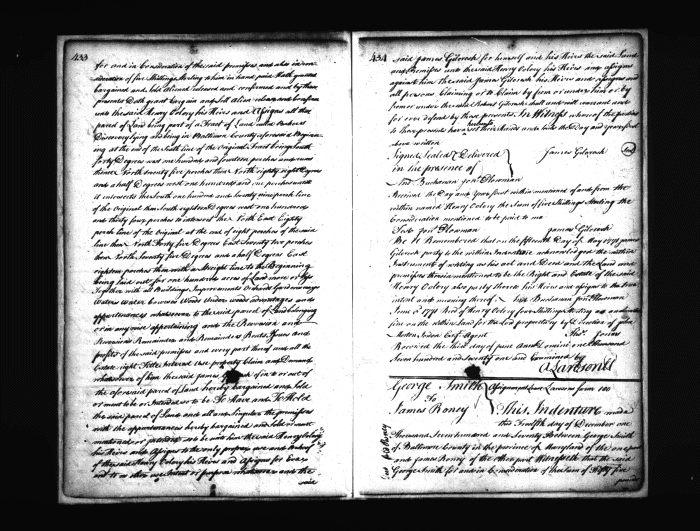 433
for and in Consideration of the said premises and also in con
sideration of five Shillings Sterling to him in hand paid Hath granted
bargained and sold aliened released and confirmed and by these
presents Doth grant bargain and sell alien release and confirm
unto the said Henry Colony his Heirs and Assigns all that
parcel of Land being part of a Tract of Land called
Discovery lying and being in Baltimore County aforesaid Beginn
ing at the end of the line of the Original Tract being South
Forty Degrees one hundred and fourteen perches and runn
thence North twenty five perches then North eighty eight Degrees
and a half Degrees west one hundred and one perches until
it intersects the South one hundred and twenty nine perch line
of the Original then South eighteen Degrees west one hundred
and thirty four perches to intersect the North East Eighty
perch line of the Original at the end of eight perches of the said
line then North Forty five Degrees East Seventy two perches
then North Seventy five Degrees and a half Degrees East
eighteen perches then with a Straight line to the Beginning
being laid out for one hundred acres of Land more or less
Together with all Buildings Improvements Orchards Gardens ways
Waters Water Courses Woods Under woods advantages and
appurtenances whatsoever to the said parcel of Land belonging
or in any wise appertaining and the Reversion and
Reversions Remainder and Remainders Rents Issues and
profits of the said premises and every part thereof and all the
Estate right Title Interest Use property Claim and Demand
whatsoever of him the said James of in to or out of
the aforesaid parcel of Land hereby bargained and sold
or meant to be or intended so to be To Have and To Hold
the said parcel of Land and all and Singular the premises
with the appurtenances hereby bargained and sold or meant
mentioned or intended so to be unto him the said Henry Colony
his Heirs and Assigns to the only proper use and behoof
of the said Henry Colony his Heirs and Assigns for Ever
and to no other use Intent or purpose whatsoever and the
said
434
said James Gilcrash for himself and his Heirs the said Land
and Premises unto the said Henry Colony his Heirs and assigns
against him the said James Gilcrash his Heirs and Assigns and
all persons Claiming or to Claim by from or under him or by
from or under the called Robert Gilcrash shall and will warrant and
for ever defend by these presents In Witness whereof the parties
to these presents have set their Hands and Seals the Day and Year first
above written
Signed Sealed & Delivered
in the presence of
James Gilcrash
And Buchanan Jonn Plowman
Received the Day and Year first within mentioned of and from the
within named Henry Colony the Sum of five Shillings Sterling the
Consideration mentioned to be paid to me
Test Jonn Plowman James Gilcrash
Be it Remembered that on the fifteenth Day of May 1771 James
Gilcrash party to the within Indenture acknowledged the within
Instrument of writing as his act and Deed and the Land and
premises therein mentioned to be the Right and Estate of the said
Henry Colony also party thereto his Heirs and assigns to the true
intent and meaning thereof And Buchanan Jonn Plowman
June 3d 1771 Recd of Henry Colony four Shillings Sterling as an aliena
tion fine on the within Land for the Lord proprietary by Direction of John
Morton Jordan Esqr Agent Thos Jones
Received the third day of June Anno Domini one thousand
Seven hundred and Seventy one and Examined by
A Lawson Clk
George Smith
To
James Roney
This Indenture made
this Twelfth day of December one
Thousand Seven hundred and Seventy Between George Smith
of Baltimore County in the province of Maryland of the one part
and James Roney of the other part Witnesseth that the said
George Smith for and in Consideration of the Sum of Fifty five
pounds